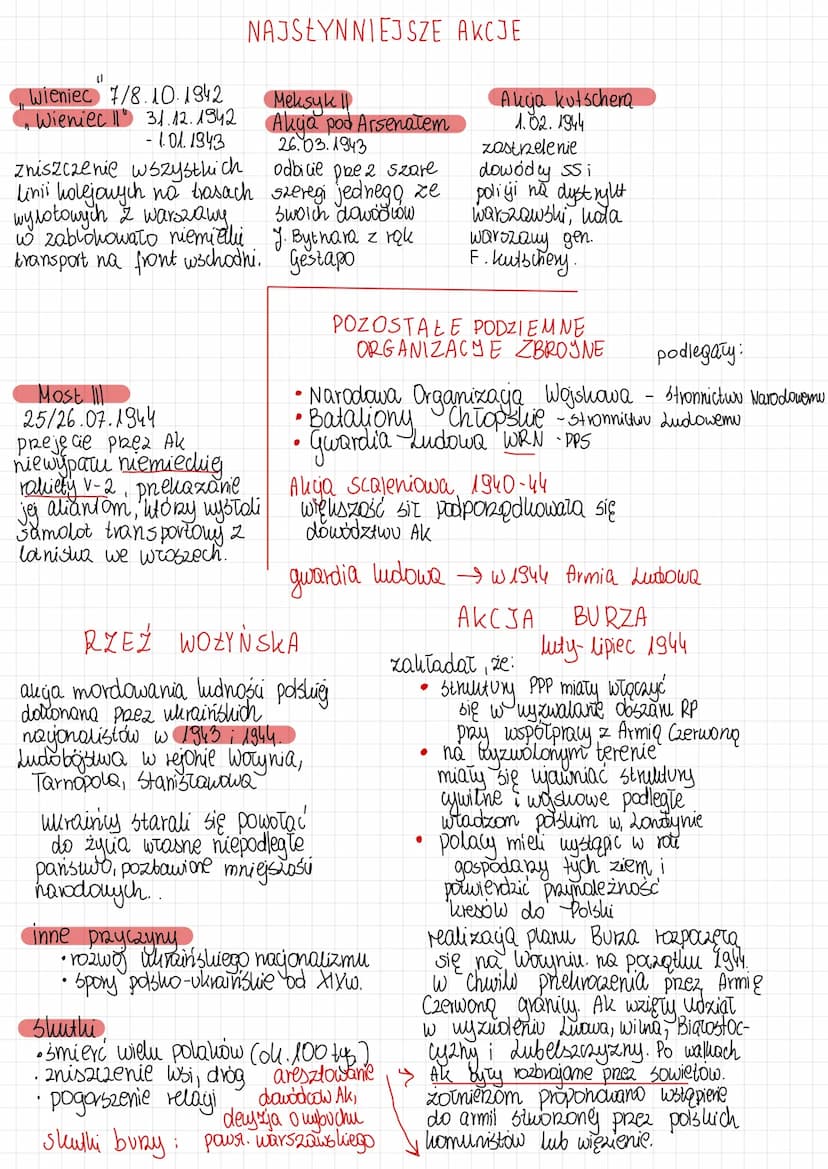 NAJSŁYNNIEJSZE AKCJE
"Wieniec" 7/8.10.1942
"Wieniec II" 31.12.1942
- 1.01.1943
zniszczenie wszystkich
linii kolejowych na trasach
wylotowych z warszawy
w zablokowało niemiecki
transport na front wschodni.
Meksyk II
Akcja pod Arsenałem
26.03.1943
odbicie przez szare
szeregi jednego ze
swoich dowódców
J. Bytnara z rąk
Gestapo
Akcja kutschera
1.02.1944
zastrzelenie
dowódcy SS i
policji na dystrykt
warszawski, kata
warszawy gen.
F. kutschery.
Most III
25/26.07.1944
przejęcie przez Ak
niewypału niemieckiej
rakiety V-2, przekazanie
jej aliantom, którzy wysłali
samolot transportowy z
lotniska we włoszech.
POZOSTAŁE PODZIEMNE
ORGANIZACJE ZBROJNE
podlegały:
• Narodowa Organizacja Wojskowa - Stronnictwu Narodowemu
• Bataliony Chłopskie - stronnictwu Ludowemu
• Gwardia Ludowa WRN - PPS
Akcja scaleniowa 1940-44
większość sił podporządkowała się
dowództwu Ak
gwardia ludowa → w 1944 Armia Ludowa
RZEŹ WOŁYŃSKA
akcja mordowania ludności polskiej
dokonana przez ukraińskich
nacjonalistów w 1943 i 1944.
Ludobójstwa w rejonie Wołynia,
Tarnopola, Stanisławowa
Ukraińcy starali się powołać
do życia własne niepodległe
państwo, pozbawione mniejszości
narodowych..
inne przyczyny
• rozwój ukraińskiego nacjonalizmu
• spory polsko-ukraińskie od XIXw.
Skutki
• śmierć wielu polaków (ok. 100 tyś)
• zniszczenie wsi, dróg
• pogorszenie relacji
skutki burzy:
aresztowanie
dowódców Ak,
decyzja o wybuchu
powst. warszawskiego
AKCJA BURZA
luty- lipiec 1944
zakładał, że:
• struktury PPP miały włączyć
się w wyzwalanie obszaru RP
przy współpracy z Armią Czerwoną
• na wyzwolonym terenie
miały się ujawniać struktury
cywilne i wojskowe podległe
władzom polskim w Londynie
• polacy mieli wystąpić w roli
gospodarzy tych ziem i
potwierdzić przynależność
kresów do Polski
realizacja planu Burza rozpoczęła
się na Wołyniu. na początku 1944.
w chwili przekroczenia przez Armię
Czerwoną granicy. Ak wzięły udział
w wyzwoleniu Lwowa, wilna, Białostoc-
czyzny i Lubelszczyzny. Po walkach
Ak były rozbrajane przez sowietów.
żołnierzom proponowano wstąpienie
do armii stworzonej przez polskich
komunistów lub więzienie.